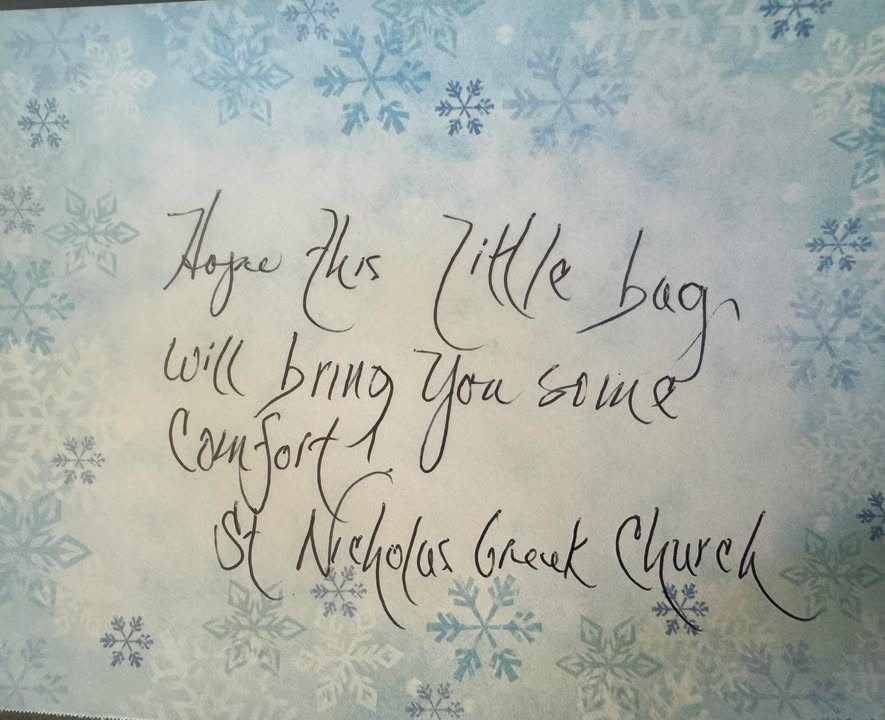 Hope this little bag
will bring you some
Comfort!
St Nicholas Greek Church